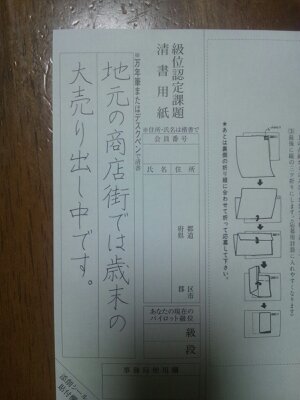 級位認定課題
清書用紙
※住所・氏名は楷書で
会員番号
氏名
住所
都道
府県
区
市
郡
あなたの現在の
パイロット級位
級
段
事務局使用欄
※万年筆またはデスクペンで清書
地元の商店街では歳末の
大売り出し中です。
★あとは裏側の折り線に合わせて折って応募して下さい。